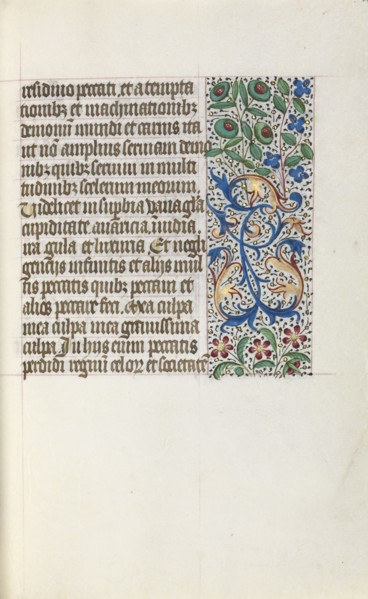 residuo peccati, et a tempta
cionibꝫ et machinationibꝫ
demoni mundi et carnis ita
ut nō amplius seruiam demo
nibꝫ quibꝫ seruiui in multi
tudinibꝫ scelerum meorum,
Videlicet in supbia vana glā
cupiditate auaricia, inuidia
ira gula et luxuria Et negli
gencijs infinitis et alijs mul
tis peccatis quibꝫ peccaui et
alios peccare feci, Mea culpa
mea culpa mea grauissima
culpa, In hijs enim peccatis
perdidi regnū celoꝝ et societatē